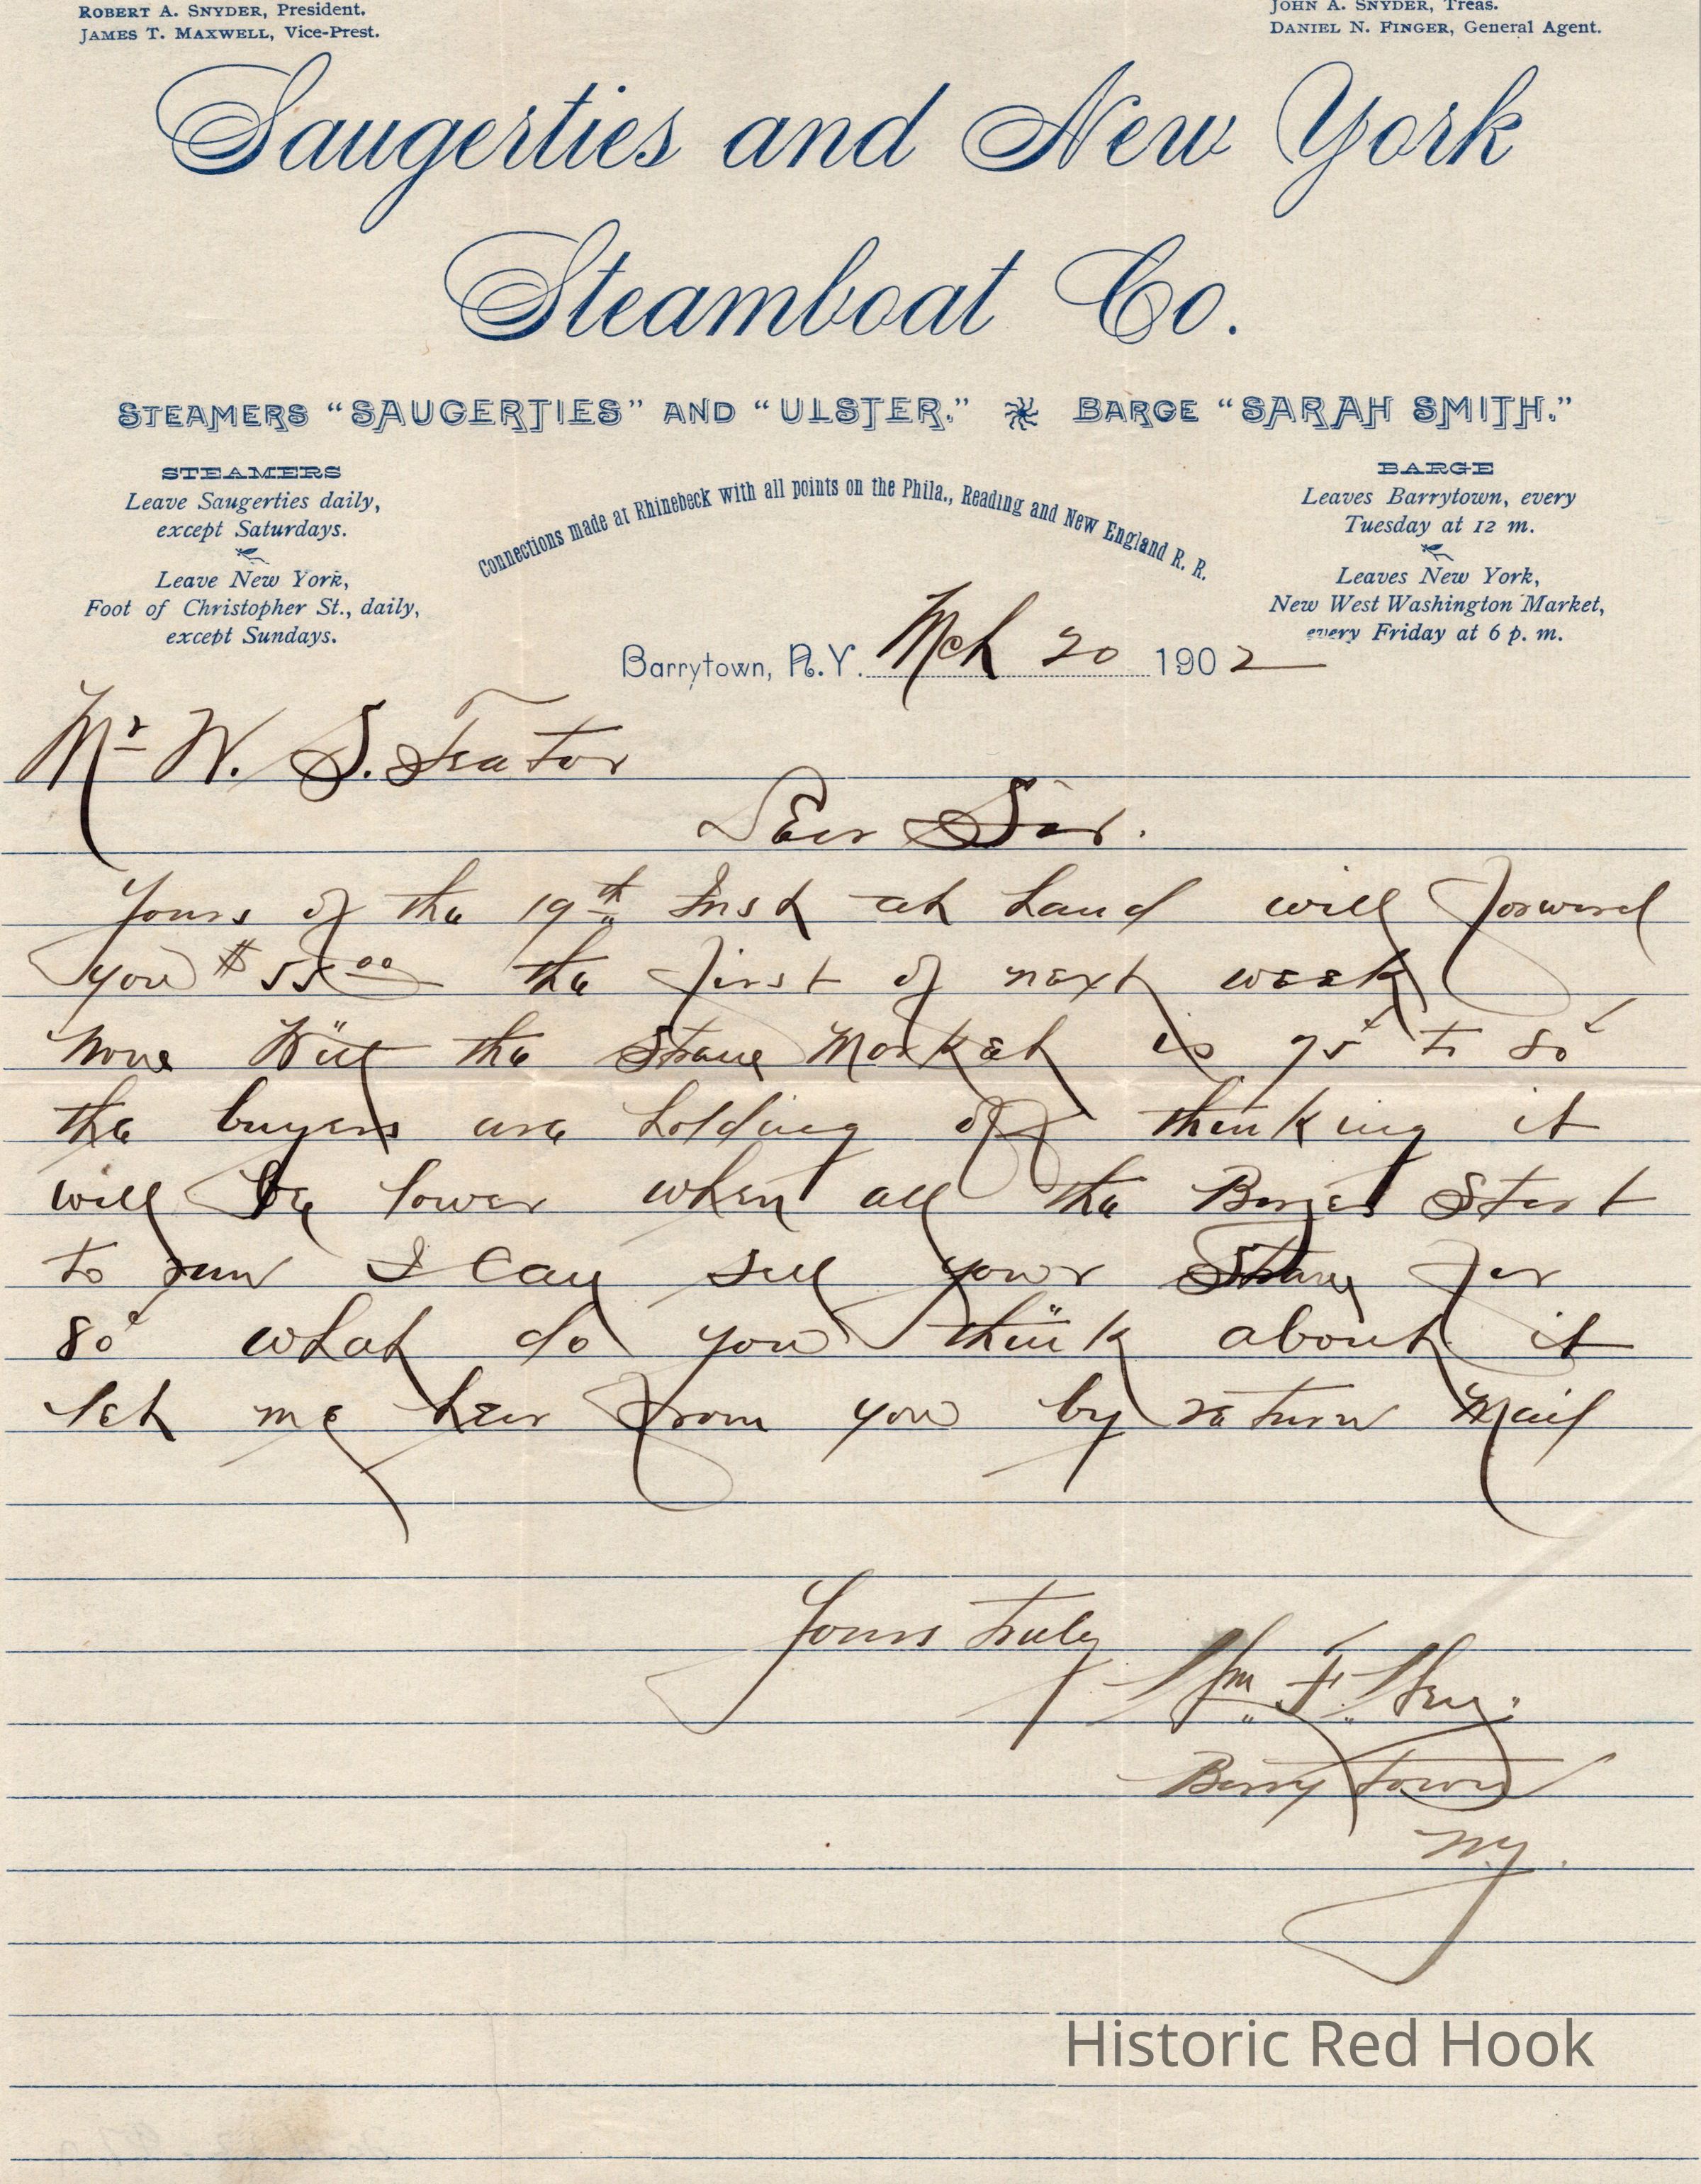 ROBERT A. SNYDER, President.
JAMES T. MAXWELL, Vice-Prest.
JOHN A. SNYDER, Treas.
DANIEL N. FINGER, General Agent.
Saugerties and New York
Steamboat Co.
STEAMERS "SAUGERTIES" AND "ULSTER." BARGE "SARAH SMITH."
STEAMERS
Leave Saugerties daily,
except Saturdays.
Leave New York,
Foot of Christopher St., daily,
except Sundays.
Connections made at Rhinebeck with all points on the Phila., Reading and New England R. R.
BARGE
Leaves Barrytown, every
Tuesday at 12 m.
Leaves New York,
New West Washington Market,
every Friday at 6 p. m.
Barrytown, N.Y. Mch 20 1902
Mr W. S. Teator
Dear Sir.
Yours of the 19th Inst at hand will forward
you $55 00 the first of next week
the Straw Market is 75¢ to 80¢
the buyers are holding off thinking it
will be lower when all the Barges Start
to run I Can sell your Straw for
80¢ what do you think about it
let me hear from you by return Mail
Yours truly
Wm. F.
Barrytown
NY.
Historic Red Hook